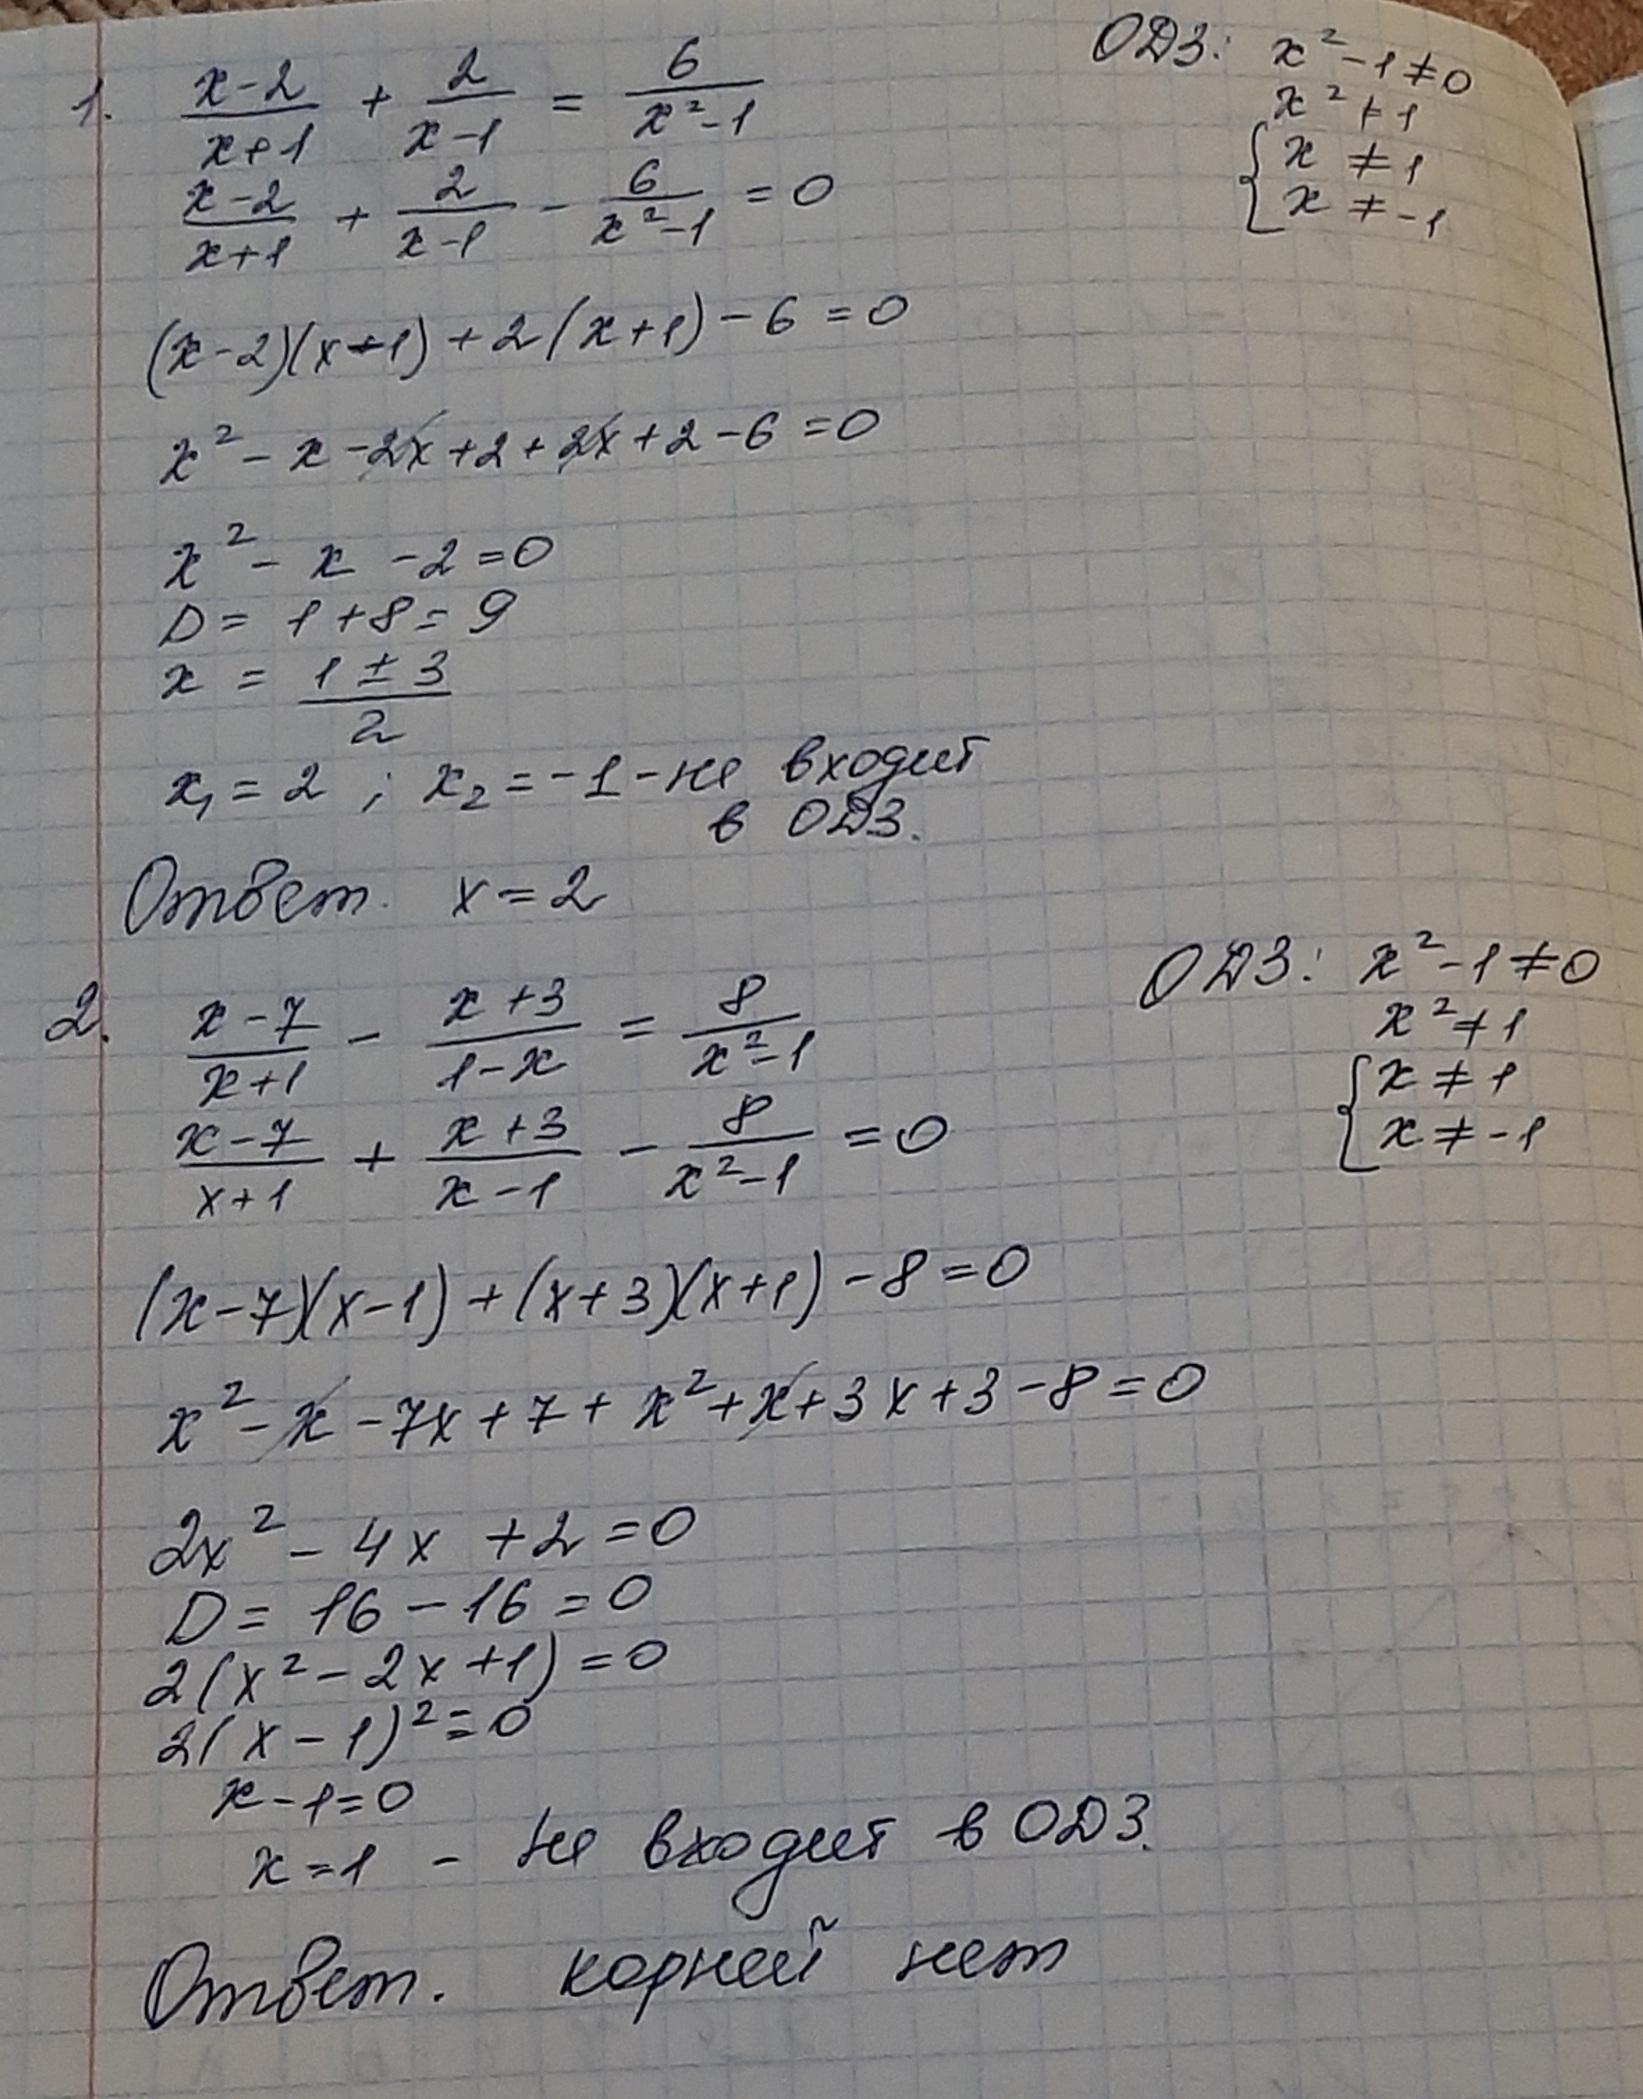 1. (x-2)/(x+1) + 2/(x-1) = 6/(x²-1)
ОДЗ: x²-1≠0
x²≠1
{ x ≠ 1
x ≠ -1
(x-2)/(x+1) + 2/(x-1) - 6/(x²-1) = 0
(x-2)(x-1) + 2(x+1) - 6 = 0
x² - x - 2x + 2 + 2x + 2 - 6 = 0
x² - x - 2 = 0
D = 1 + 8 = 9
x = (1 ± 3)/2
x₁ = 2 ; x₂ = -1 - не входит
в ОДЗ.
Ответ. x = 2
2. (x-7)/(x+1) - (x+3)/(1-x) = 8/(x²-1)
ОДЗ: x²-1≠0
x²≠1
{ x ≠ 1
x ≠ -1
(x-7)/(x+1) + (x+3)/(x-1) - 8/(x²-1) = 0
(x-7)(x-1) + (x+3)(x+1) - 8 = 0
x² - x - 7x + 7 + x² + x + 3x + 3 - 8 = 0
2x² - 4x + 2 = 0
D = 16 - 16 = 0
2(x² - 2x + 1) = 0
2(x - 1)² = 0
x - 1 = 0
x = 1 - не входит в ОДЗ.
Ответ. корней нет